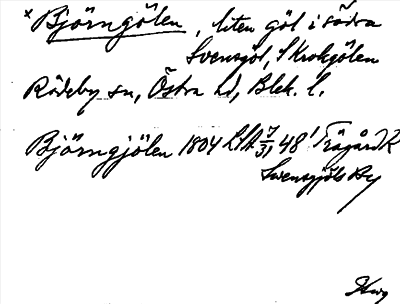 × Björngölen, liten göl i södra
Svensgöl, S Krokgölen
Rödeby sn, Östra hd, Blek. l.
Björngjölen 1804 LSA 7/31 48
Svensgjöls By